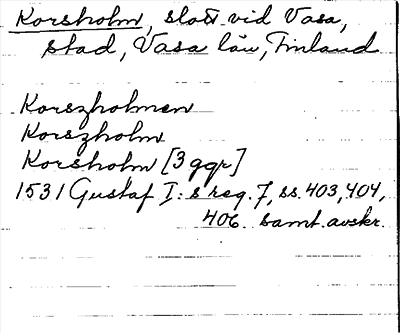 Korsholm, slott vid Vasa,
stad, Vasa län, Finland
Korszholmen
Korszholm
Korsholm [3 ggr]
1531 Gustaf I:s reg. 7, ss. 403, 404,
406 samt. avskr.